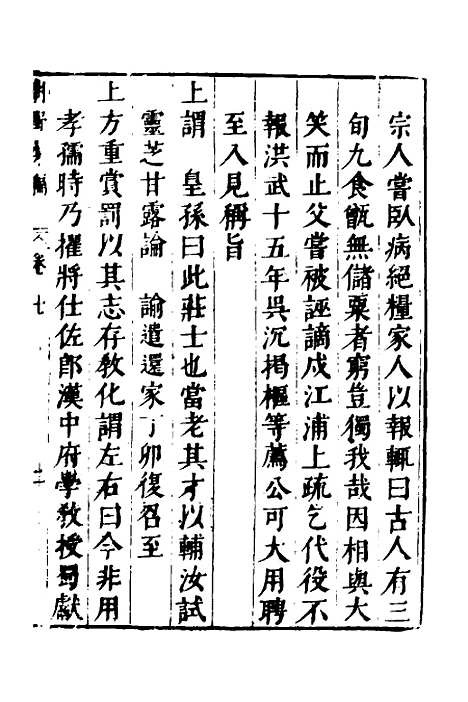 宗人嘗臥病絕糧家人以報輒曰古人有三
旬九食甑無儲粟者窮豈獨我哉因相與大
笑而止父嘗被誣謫戍江浦上疏乞代役不
報洪武十五年吳沉揭樞等薦公可大用聘
至入見稱旨
上謂　皇孫曰此莊士也當老其才以輔汝試
靈芝甘露論　諭遣還家丁卯復召至
上方重賞罰以其志存教化謂左右曰今非用
孝孺時乃擢將仕佐郎漢中府學教授蜀獻
卷七